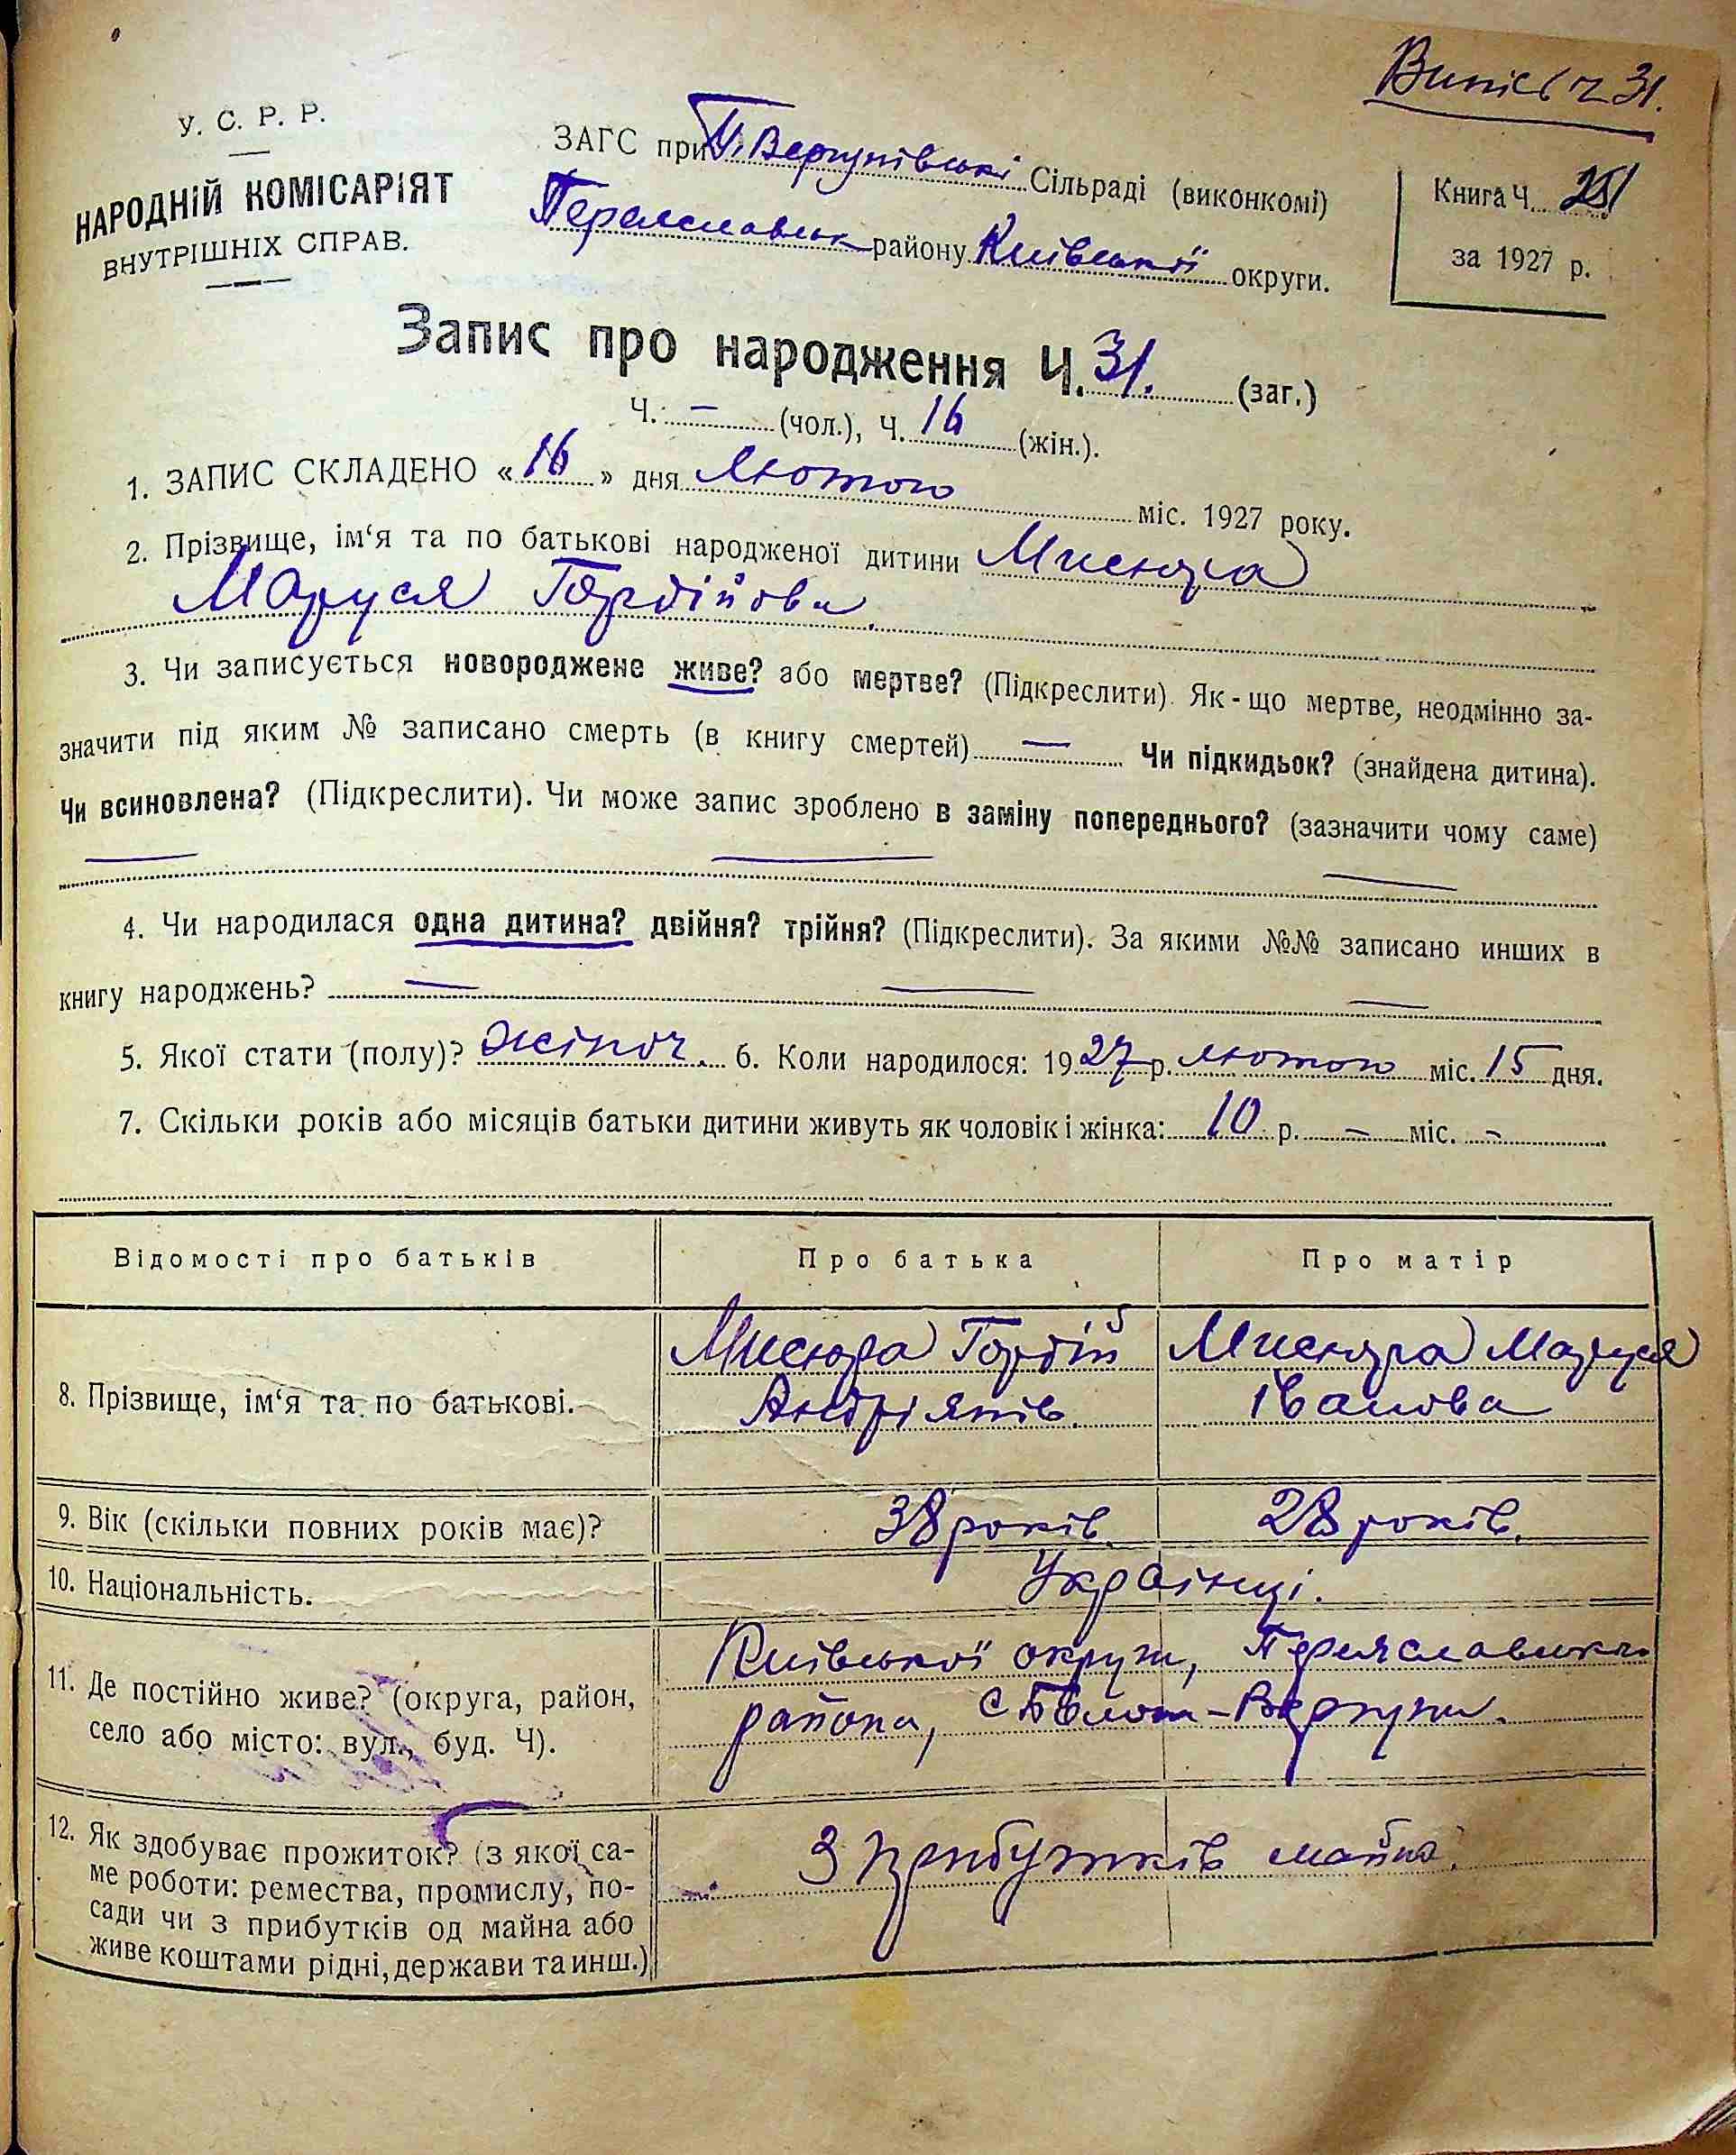 Випись ч 31.
У. С. Р. Р.
НАРОДНІЙ КОМІСАРІЯТ
ВНУТРІШНІХ СПРАВ.
ЗАГС при Вергунівські Сільраді (виконкомі)
Переяславськ району Київської округи.
Книга Ч.
за 1927 р.
Запис про народження Ч. 31. (заг.)
Ч. — (чол.), Ч. 16 (жін.).
1. ЗАПИС СКЛАДЕНО « 16 » дня Лютого міс. 1927 року.
2. Прізвище, ім‘я та по батькові народженої дитини Мисюра
Маруся Гордійова.
3. Чи записується новороджене живе? або мертве? (Підкреслити). Як-що мертве, неодмінно за-
значити під яким № записано смерть (в книгу смертей) — Чи підкидьок? (знайдена дитина).
Чи всиновлена? (Підкреслити). Чи може запис зроблено в заміну попереднього? (зазначити чому саме)
— — —
4. Чи народилася одна дитина? двійня? трійня? (Підкреслити). За якими №№ записано инших в
книгу народжень? — — —
5. Якої стати (полу)? жіноч. 6. Коли народилося: 1927 р. лютого міс. 15 дня.
7. Скільки років або місяців батьки дитини живуть як чоловік і жінка: 10 р. — міс. -
Відомості про батьків Про батька Про матір
8. Прізвище, ім‘я та по батькові. Мисюра Гордій Мисюра Маруся
Андріянів. Іванова
9. Вік (скільки повних років має)? 38 років. 28 років.
10. Національність. Українці.
11. Де постійно живе? (округа, район,
село або місто: вул., буд. Ч).
Київської округи, Переяславськ.
района, с
12. Як здобуває прожиток? (з якої са-
ме роботи: ремества, промислу, по-
сади чи з прибутків од майна або
живе коштами рідні, держави та инш.)
З прибутків майна.